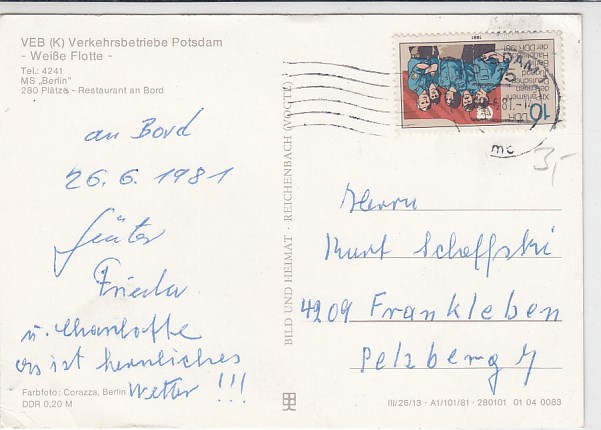 VEB (K) Verkehrsbetriebe Potsdam
- Weiße Flotte -
Tel.: 4241
MS „Berlin"
280 Plätze - Restaurant an Bord
an Bord
26. 6. 1981
Günter
Frieda
u. Charlotte
es ist herrliches
Wetter !!!
Farbfoto: Corazza, Berlin
DDR 0,20 M
BILD UND HEIMAT · REICHENBACH (VOGTL)
1981
XI. Parlament
der Freien
Deutschen
Jugend
Berlin
Hauptstadt
der DDR 1981
DDR
10
81.-
mc
3,-
Herrn
Kurt Scheffski
4209 Frankleben
Pelzberg 7
III/26/13 · A1/101/81 · 280101 01 04 0083